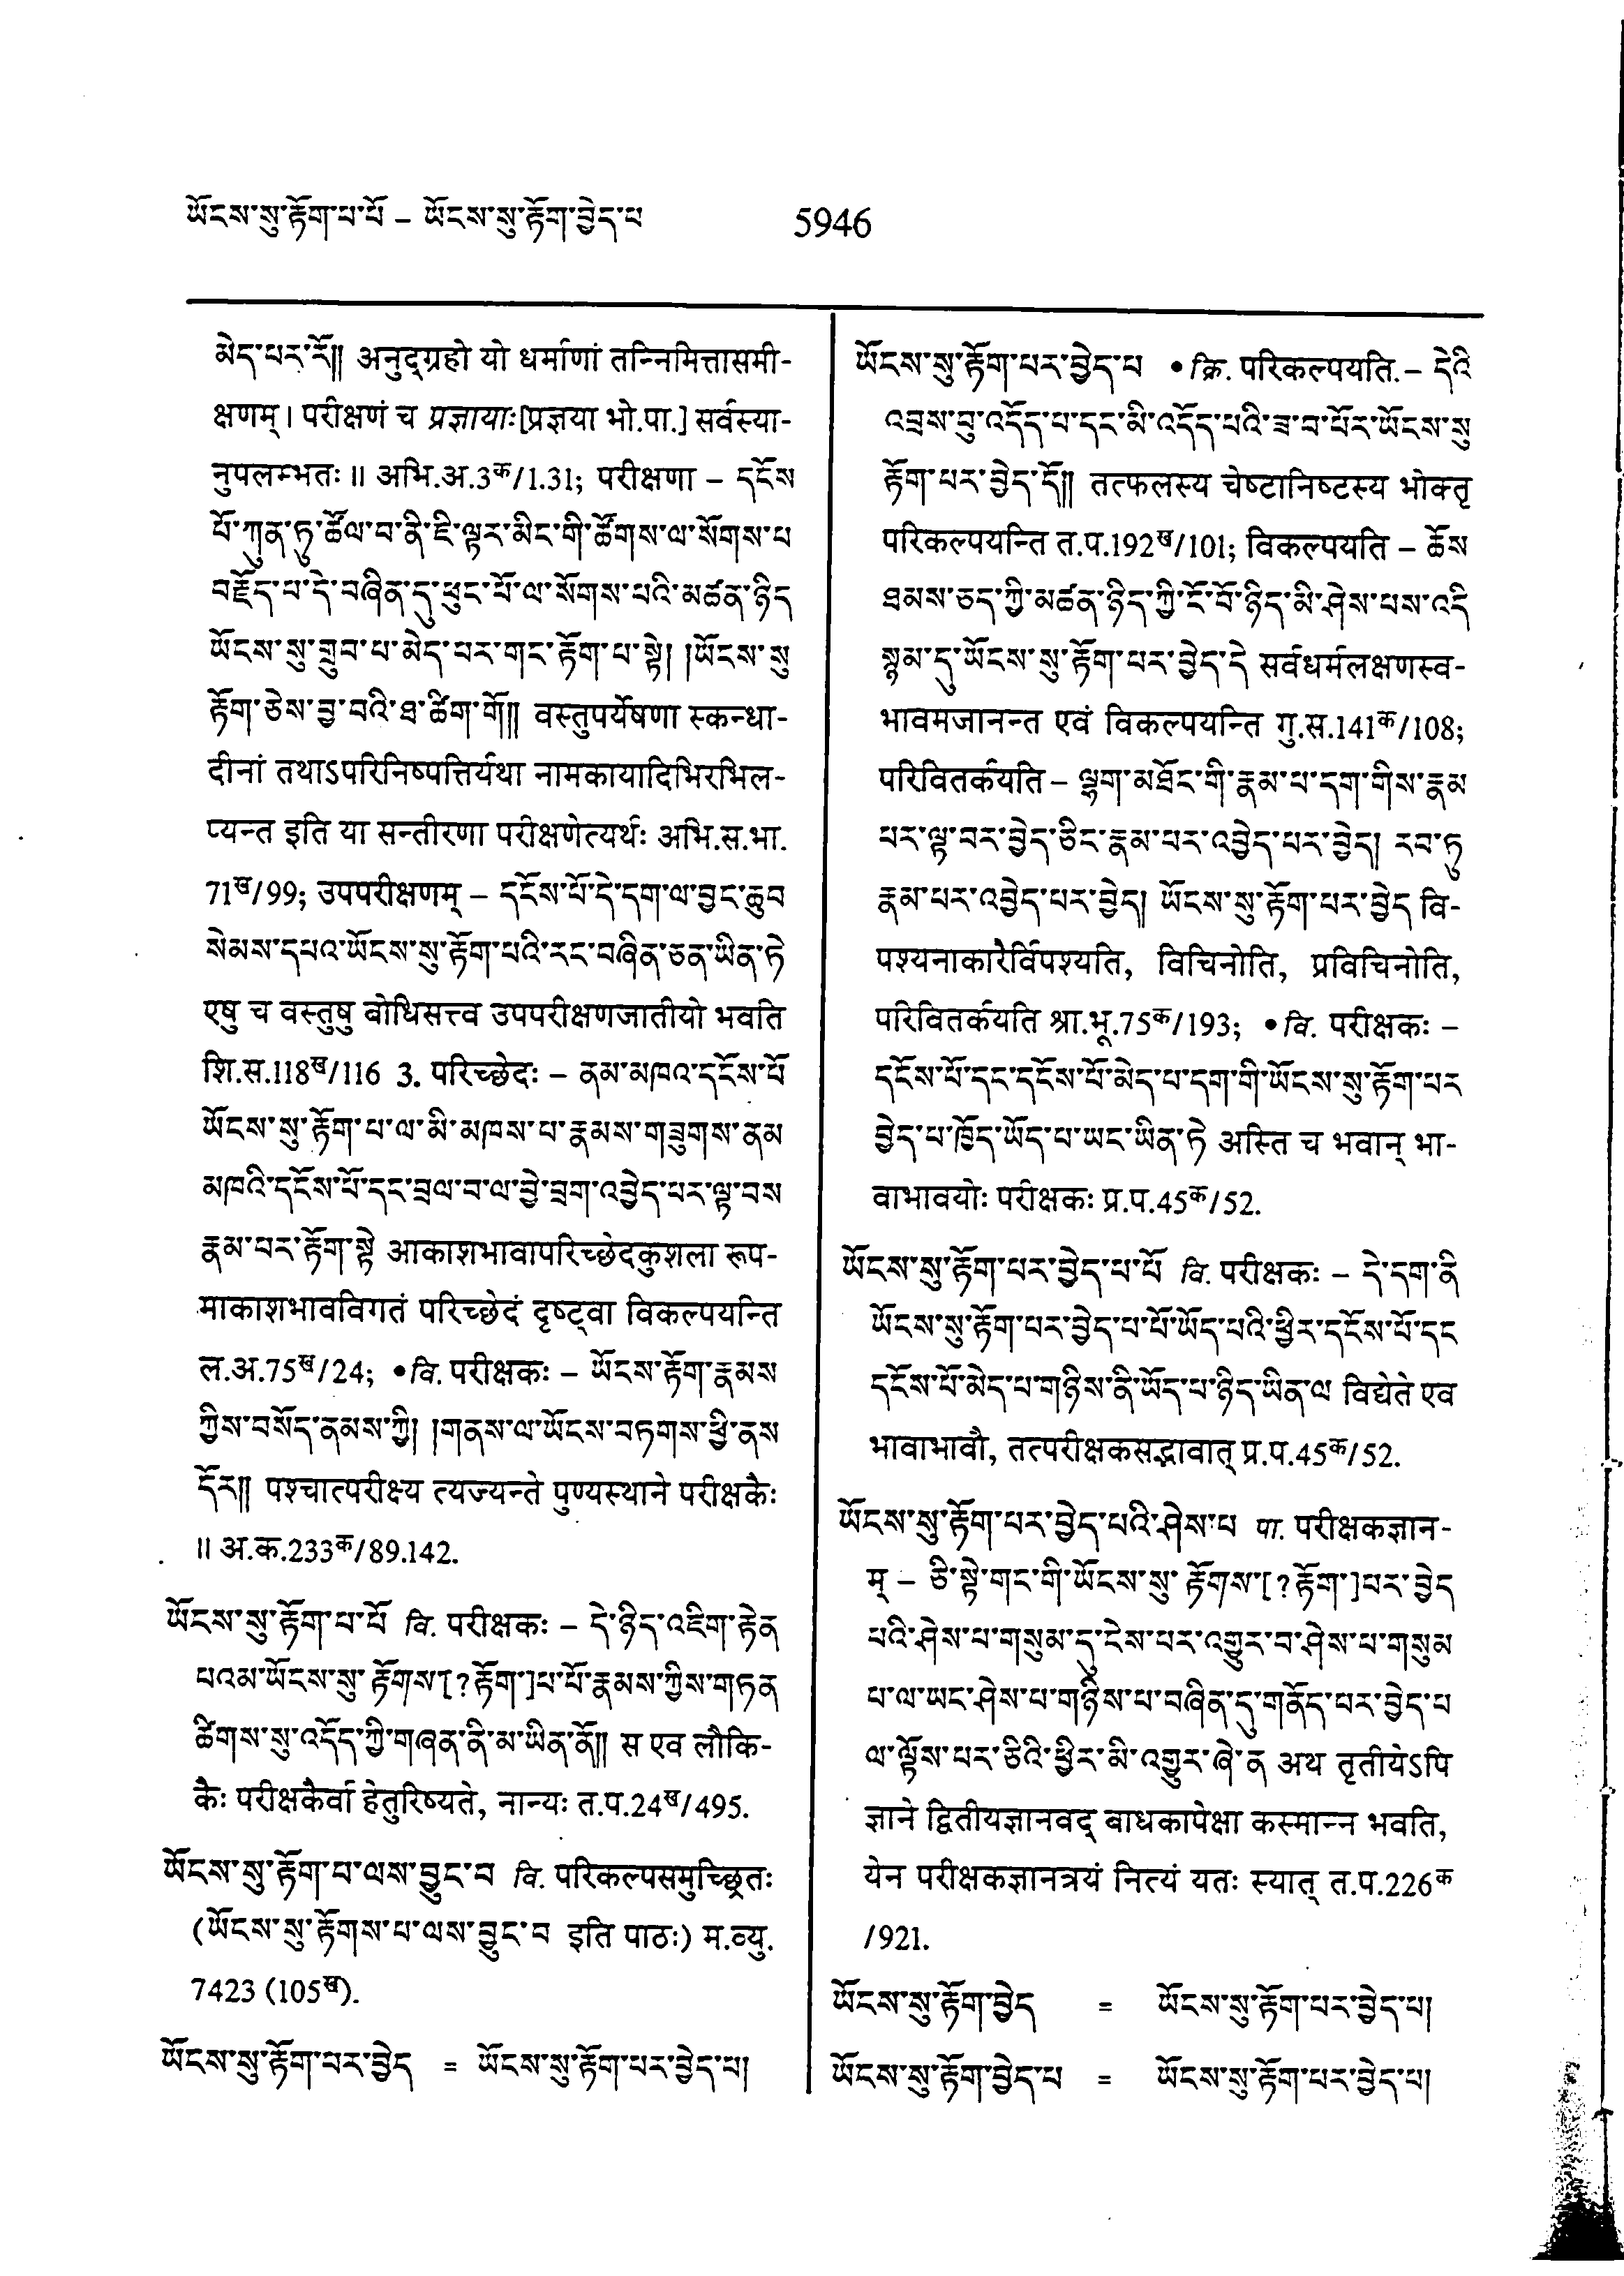 ཡོངས་སུ་རྟོག་པ་པོ – ཡོངས་སུ་རྟོག་བྱེད་པ 5946
མེད་པར་རོ།། अनुद्ग्रहो यो धर्माणां तन्निमित्तासमी-
क्षणम्। परीक्षणं च प्रज्ञायाः[प्रज्ञया भो.पा.] सर्वस्या-
नुपलम्भतः॥ अभि.अ.3क/1.31; परीक्षणा – དངོས
པོ་ཀུན་ཏུ་ཚོལ་བ་ནི་ཇི་ལྟར་མིང་གི་ཚོགས་ལ་སོགས་པ
བརྗོད་པ་དེ་བཞིན་དུ་ཕུང་པོ་ལ་སོགས་པའི་མཚན་ཉིད
ཡོངས་སུ་གྲུབ་པ་མེད་པར་གང་རྟོག་པ་སྟེ། །ཡོངས་སུ
རྟོག་ཅེས་བྱ་བའི་ཐ་ཚིག་གོ།། वस्तुपर्येषणा स्कन्धा-
दीनां तथाऽपरिनिष्पत्तिर्यथा नामकायादिभिरभिल-
प्यन्त इति या सन्तीरणा परीक्षणेत्यर्थः अभि.स.भा.
71ख/99; उपपरीक्षणम् – དངོས་པོ་དེ་དག་ལ་བྱང་ཆུབ
སེམས་དཔའ་ཡོངས་སུ་རྟོག་པའི་རང་བཞིན་ཅན་ཡིན་ཏེ
एषु च वस्तुषु बोधिसत्त्व उपपरीक्षणजातीयो भवति
शि.स.118ख/116 3. परिच्छेदः – ནམ་མཁའ་དངོས་པོ
ཡོངས་སུ་རྟོག་པ་ལ་མི་མཁས་པ་རྣམས་གཟུགས་ནམ
མཁའི་དངོས་པོ་དང་བྲལ་བ་ལ་བྱེ་བྲག་འབྱེད་པར་ལྟ་བས
རྣམ་པར་རྟོག་སྟེ आकाशभावापरिच्छेदकुशला रूप-
माकाशभावविगतं परिच्छेदं दृष्ट्वा विकल्पयन्ति
ल.अ.75ख/24; •वि. परीक्षकः – ཡོངས་རྟོག་རྣམས
ཀྱིས་བསོད་ནམས་ཀྱི། །གནས་ལ་ཡོངས་བཏགས་ཕྱི་ནས
དོར།། पश्चात्परीक्ष्य त्यज्यन्ते पुण्यस्थाने परीक्षकैः
॥ अ.क.233क/89.142.
ཡོངས་སུ་རྟོག་པ་པོ वि. परीक्षकः – དེ་ཉིད་འཇིག་རྟེན
པའམ་ཡོངས་སུ་ རྟོགས་[?རྟོག་]པ་པོ་རྣམས་ཀྱིས་གཏན
ཚིགས་སུ་འདོད་ཀྱི་གཞན་ནི་མ་ཡིན་ནོ།། स एव लौकि-
कैः परीक्षकैर्वा हेतुरिष्यते, नान्यः त.प.24ख/495.
ཡོངས་སུ་རྟོག་པ་ལས་བྱུང་བ वि. परिकल्पसमुच्छ्रितः
(ཡོངས་སུ་རྟོགས་པ་ལས་བྱུང་བ इति पाठः) म.व्यु.
7423 (105ख).
ཡོངས་སུ་རྟོག་པར་བྱེད = ཡོངས་སུ་རྟོག་པར་བྱེད་པ།
ཡོངས་སུ་རྟོག་པར་བྱེད་པ •क्रि. परिकल्पयति.– དེའི
འབྲས་བུ་འདོད་པ་དང་མི་འདོད་པའི་ཟ་བ་པོར་ཡོངས་སུ
རྟོག་པར་བྱེད་དོ།། तत्फलस्य चेष्टानिष्टस्य भोक्तृ
परिकल्पयन्ति त.प.192ख/101; विकल्पयति – ཆོས
ཐམས་ཅད་ཀྱི་མཚན་ཉིད་ཀྱི་ངོ་བོ་ཉིད་མི་ཤེས་པས་འདི
སྙམ་དུ་ཡོངས་སུ་རྟོག་པར་བྱེད་དེ सर्वधर्मलक्षणस्व-
भावमजानन्त एवं विकल्पयन्ति गु.स.141क/108;
परिवितर्कयति – ལྷག་མཐོང་གི་རྣམ་པ་དག་གིས་རྣམ
པར་ལྟ་བར་བྱེད་ཅིང་རྣམ་པར་འབྱེད་པར་བྱེད། རབ་ཏུ
རྣམ་པར་འབྱེད་པར་བྱེད། ཡོངས་སུ་རྟོག་པར་བྱེད वि-
पश्यनाकारैर्विपश्यति, विचिनोति, प्रविचिनोति,
परिवितर्कयति श्रा.भू.75क/193; •वि. परीक्षकः –
དངོས་པོ་དང་དངོས་པོ་མེད་པ་དག་གི་ཡོངས་སུ་རྟོག་པར
བྱེད་པ་ཁྱོད་ཡོད་པ་ཡང་ཡིན་ཏེ अस्ति च भवान् भा-
वाभावयोः परीक्षकः प्र.प.45क/52.
ཡོངས་སུ་རྟོག་པར་བྱེད་པ་པོ वि. परीक्षकः – དེ་དག་ནི
ཡོངས་སུ་རྟོག་པར་བྱེད་པ་པོ་ཡོད་པའི་ཕྱིར་དངོས་པོ་དང
དངོས་པོ་མེད་པ་གཉིས་ནི་ཡོད་པ་ཉིད་ཡིན་ལ विद्येते एव
भावाभावौ, तत्परीक्षकसद्भावात् प्र.प.45क/52.
ཡོངས་སུ་རྟོག་པར་བྱེད་པའི་ཤེས་པ पा. परीक्षकज्ञान-
म् – ཅི་སྟེ་གང་གི་ཡོངས་སུ་ རྟོགས་[?རྟོག་]པར་བྱེད
པའི་ཤེས་པ་གསུམ་དུ་ངེས་པར་འགྱུར་བ་ཤེས་པ་གསུམ
པ་ལ་ཡང་ཤེས་པ་གཉིས་པ་བཞིན་དུ་གནོད་པར་བྱེད་པ
ལ་ལྟོས་པར་ཅིའི་ཕྱིར་མི་འགྱུར་ཞེ་ན अथ तृतीयेऽपि
ज्ञाने द्वितीयज्ञानवद् बाधकापेक्षा कस्मान्न भवति,
येन परीक्षकज्ञानत्रयं नित्यं यतः स्यात् त.प.226क
/921.
ཡོངས་སུ་རྟོག་བྱེད = ཡོངས་སུ་རྟོག་པར་བྱེད་པ།
ཡོངས་སུ་རྟོག་བྱེད་པ = ཡོངས་སུ་རྟོག་པར་བྱེད་པ།